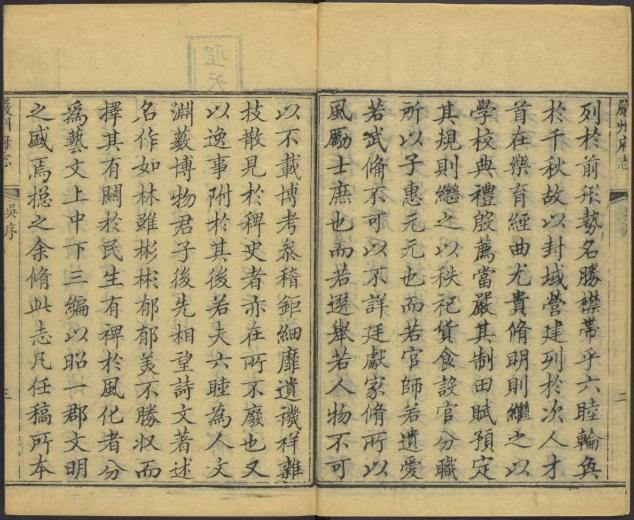 嚴州府志
二
列於前形勢名勝襟帶乎六睦輪奐
於千秋故以封域營建列於次人才
首在樂育經曲尤貴脩明則繼之以
學校典禮殷薦當嚴其制田賦預定
其規則繼之以秩祀貨食設官分職
所以子惠元元也而若官師若遺愛
若武俻不可以不詳廷獻家脩所以
風勵士庶也而若選舉若人物不可
以不載博考叅稽鉅細靡遺禨祥雜
技散見於稗史者亦在所不廢也又
以逸事附於其後若夫六睦為人文
淵藪博物君子後先相望詩文著述
名作如林雖彬彬郁郁美不勝収而
擇其有關於民生有裨於風化者分
爲藝文上中下三編以昭一郡文明
之盛焉揔之余脩此志凡任稿所本
嚴州府志
吳序
三